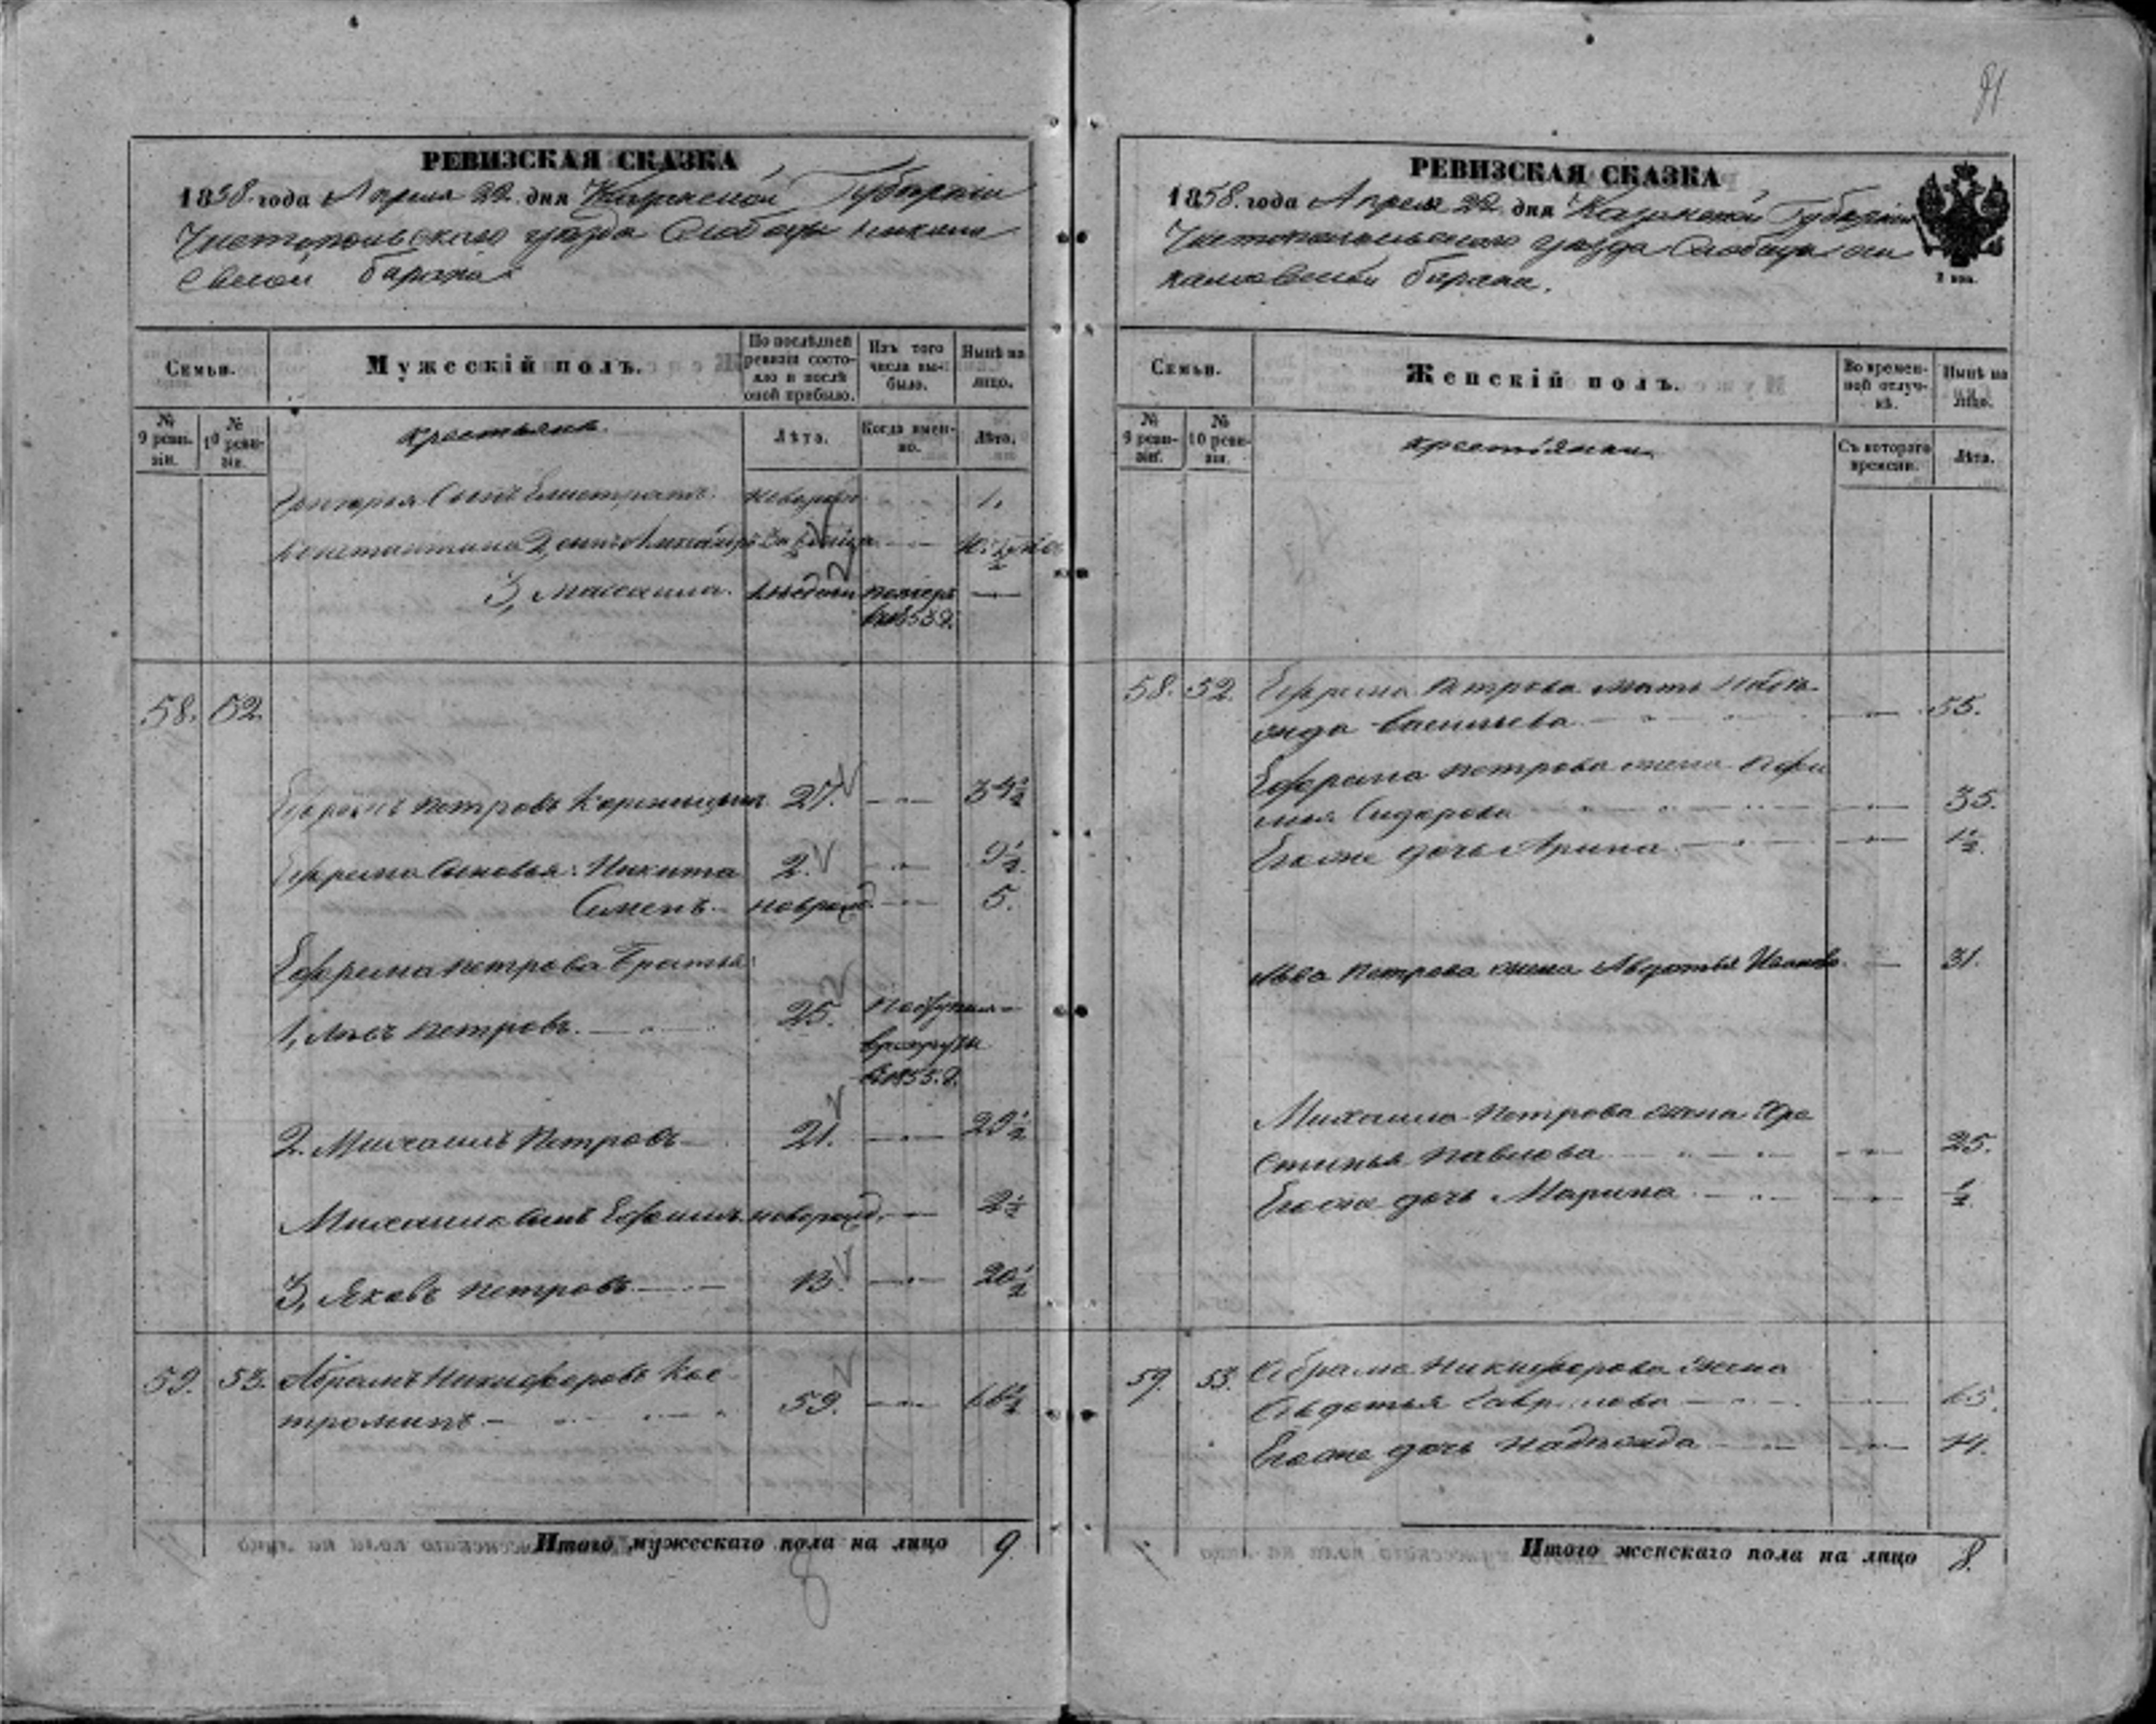 91
РЕВИЗСКАЯ СКАЗКА
1858 года Апреля 22 дня Казанской Губернии
Чистопольскаго уезда Слободы
ской барана
Семьи.
Мужескій полъ.
По послѣдней ревизіи состояло и послѣ оной прибыло.
Изъ того числа выбыло.
Нынѣ на лицо.
№ 9 ревизіи.
№ 10 ревизіи.
крестьяне.
Лѣта.
Когда именно.
Лѣта.
Григорья Сынъ Елистратъ новорож 1.
Константина 2, сынъ
3, помер 
58. 52.
Ефремъ Петровъ 27. 34½
Ефрема Сыновья: Никита 2. 9½
Семенъ новрожд 5.
Ефрема Петрова Братья:
1, Левъ Петровъ 25. поступил
в рекруты
в 1855 г.
2. Михаилъ Петровъ 21. 29½
Михаила Сынъ Ефимъ новорожд. 2½
3, Яковъ Петровъ 13. 20½
59. 53. Абрамъ Никифоровъ Кос
троминъ 59. 66½
Итого мужескаго пола на лицо 9.
8
РЕВИЗСКАЯ СКАЗКА
1858. года Апреля 22 дня Казанской Губернии
Чистопольскаго уезда Слободы
барана.
2 коп.
Семьи.
Женскій полъ.
Во временной отлучкѣ.
Нынѣ на лицо.
№ 9 ревизіи.
№ 10 ревизіи.
крестьянки
Съ котораго времени.
Лѣта.
58. 52. Ефрема Петрова мать
Васильева 55.
Ефрема Петрова жена Афи
мья Сидорова 35.
Ево же дочь Арина 1½.
Льва Петрова жена Авдотья Иванова 31.
Михаила Петрова жена Хре
стинья Павлова 25.
Ево же дочь Марина ½.
59. 53. Абрама Никифорова жена
Авдотья Гаврилова 65.
Ево же дочь Надежда
Итого женскаго пола на лицо 8.